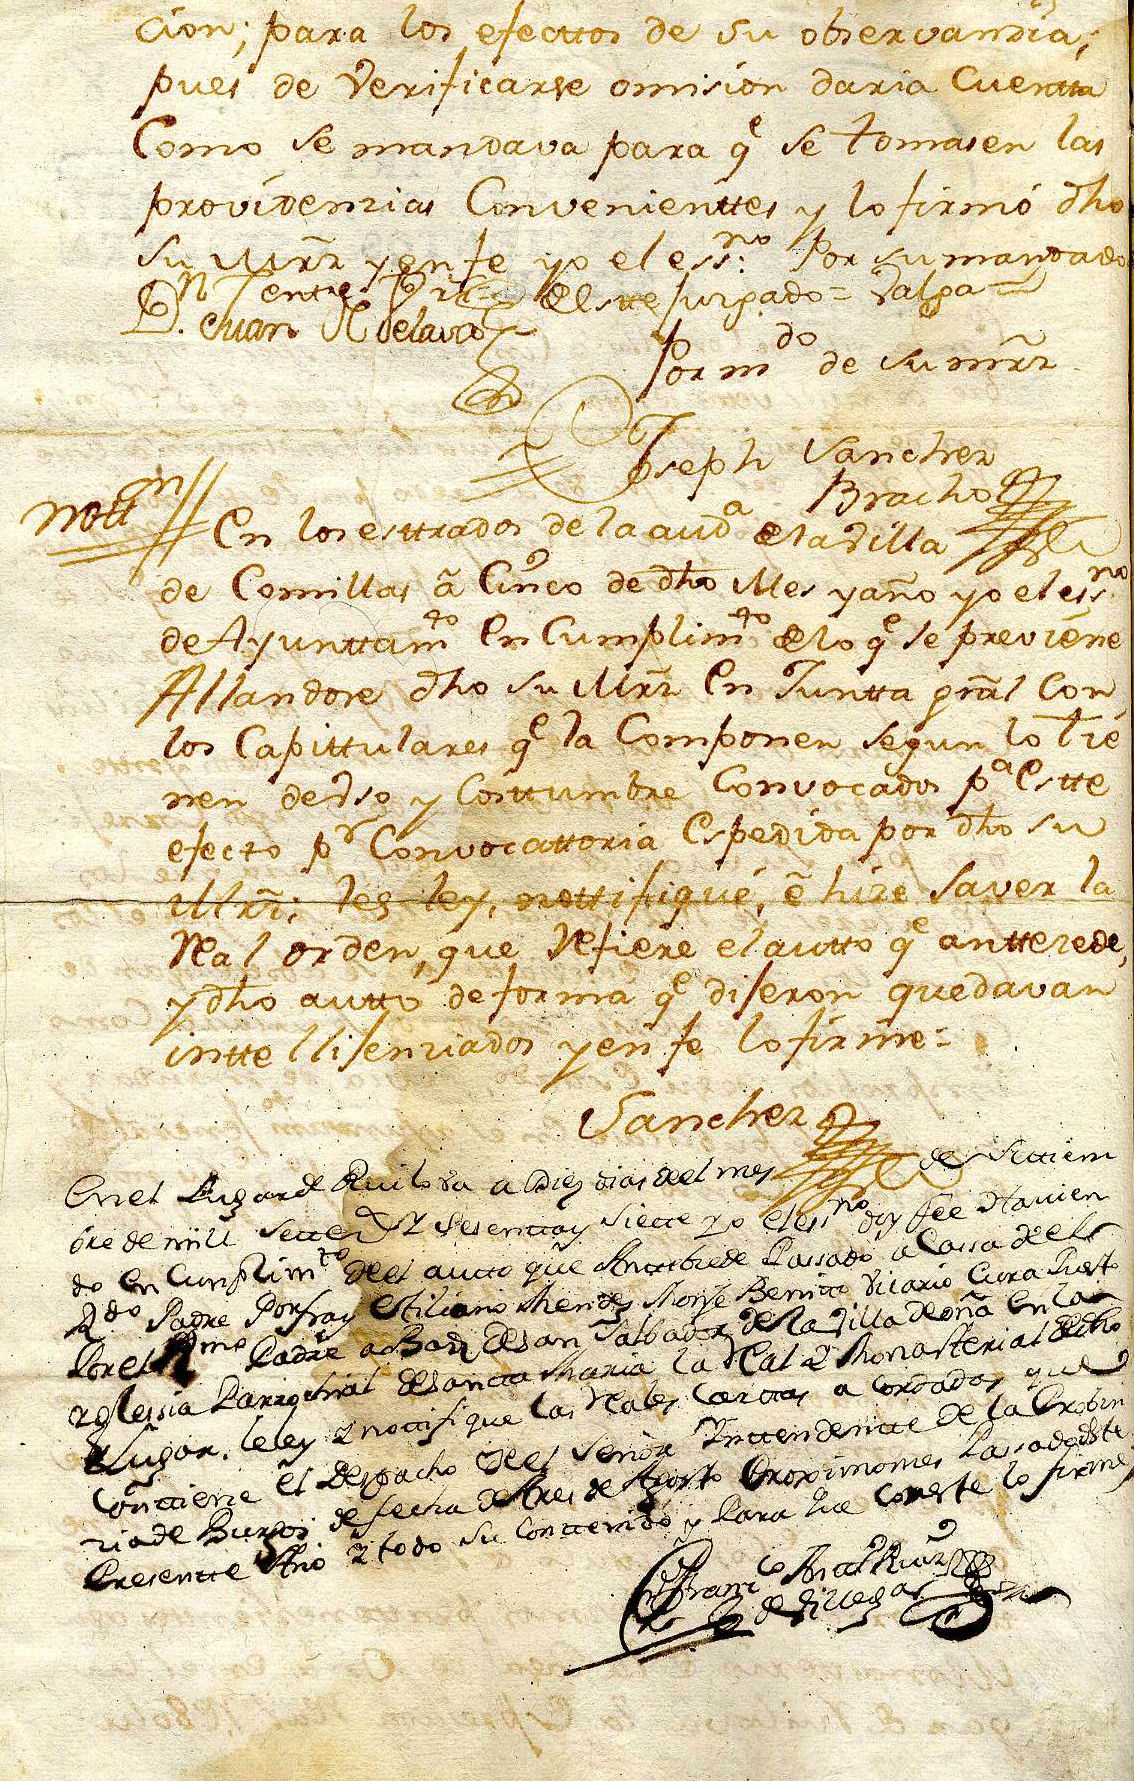 cion; para los efecttos de su observanzia;
pues de Verificarse omision daria Cuentta
Como se mandava para q^e se tomasen las
providenzias Convenienttes y lo firmó dho
su Mrz̃ y en fe yo el ess^no: Por su mandado
Eltte Jusgado = Valga =
D. Juan
Por m^do de su mrz̃
Joseph Sanchez
Bracho
nott^on
En los esttrados de la aud^a de la Villa
de Comillas â Cinco de dho Mes y año yo el ess^no
de Ayunttam^to En Cumplim^to de lo q^e se previene
Allandose dho su Mrz̃ En Juntta grãl Con
los Capittulares q^e la Componen segun lo tie
nen de Vso y Costtumbre Convocados p^a Estte
efecto p^r Convocattoria Espedida por dho su
Mrz̃; les ley, nottifiqué, ê hize Saver la
Real orden, que Refiere el autto q^e anttezede,
y dho autto de forma q^e diJeron quedavan
inttelliJenziados y en fe lo firme =
Sanchez
En el Lugar de Ruiloba a Diez dias del mes de Settiem
bre de mill Sette y Sesentta y Siette yo el ess^no doy fee que avien
do En Cumplim^to del autto que Antezede Passado a Cassa de el
R^do Padre Por fray Millano Mendez Monje Benitto Vicario Cura Puesto
Por el R^mo Padre Abad de San Salbador de la Villa de oña En la
yglessia Parroquial de Santta Maria la Real y Monasterial de dho
Lugar. le ley y nottifique las Reales Carttas acordadas que
Conttiene el Despacho del Señor Inttendentte de la Probin
zia de Burgos de fecha de tres de Agosto Proximo mes Passado de este
Presentte Año y todo su Conttenido y Para que Conste lo firme
Fran^co
de Villegas